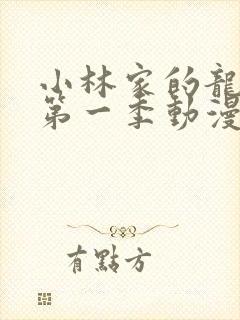 小林家的龍
第一季動漫
有點方